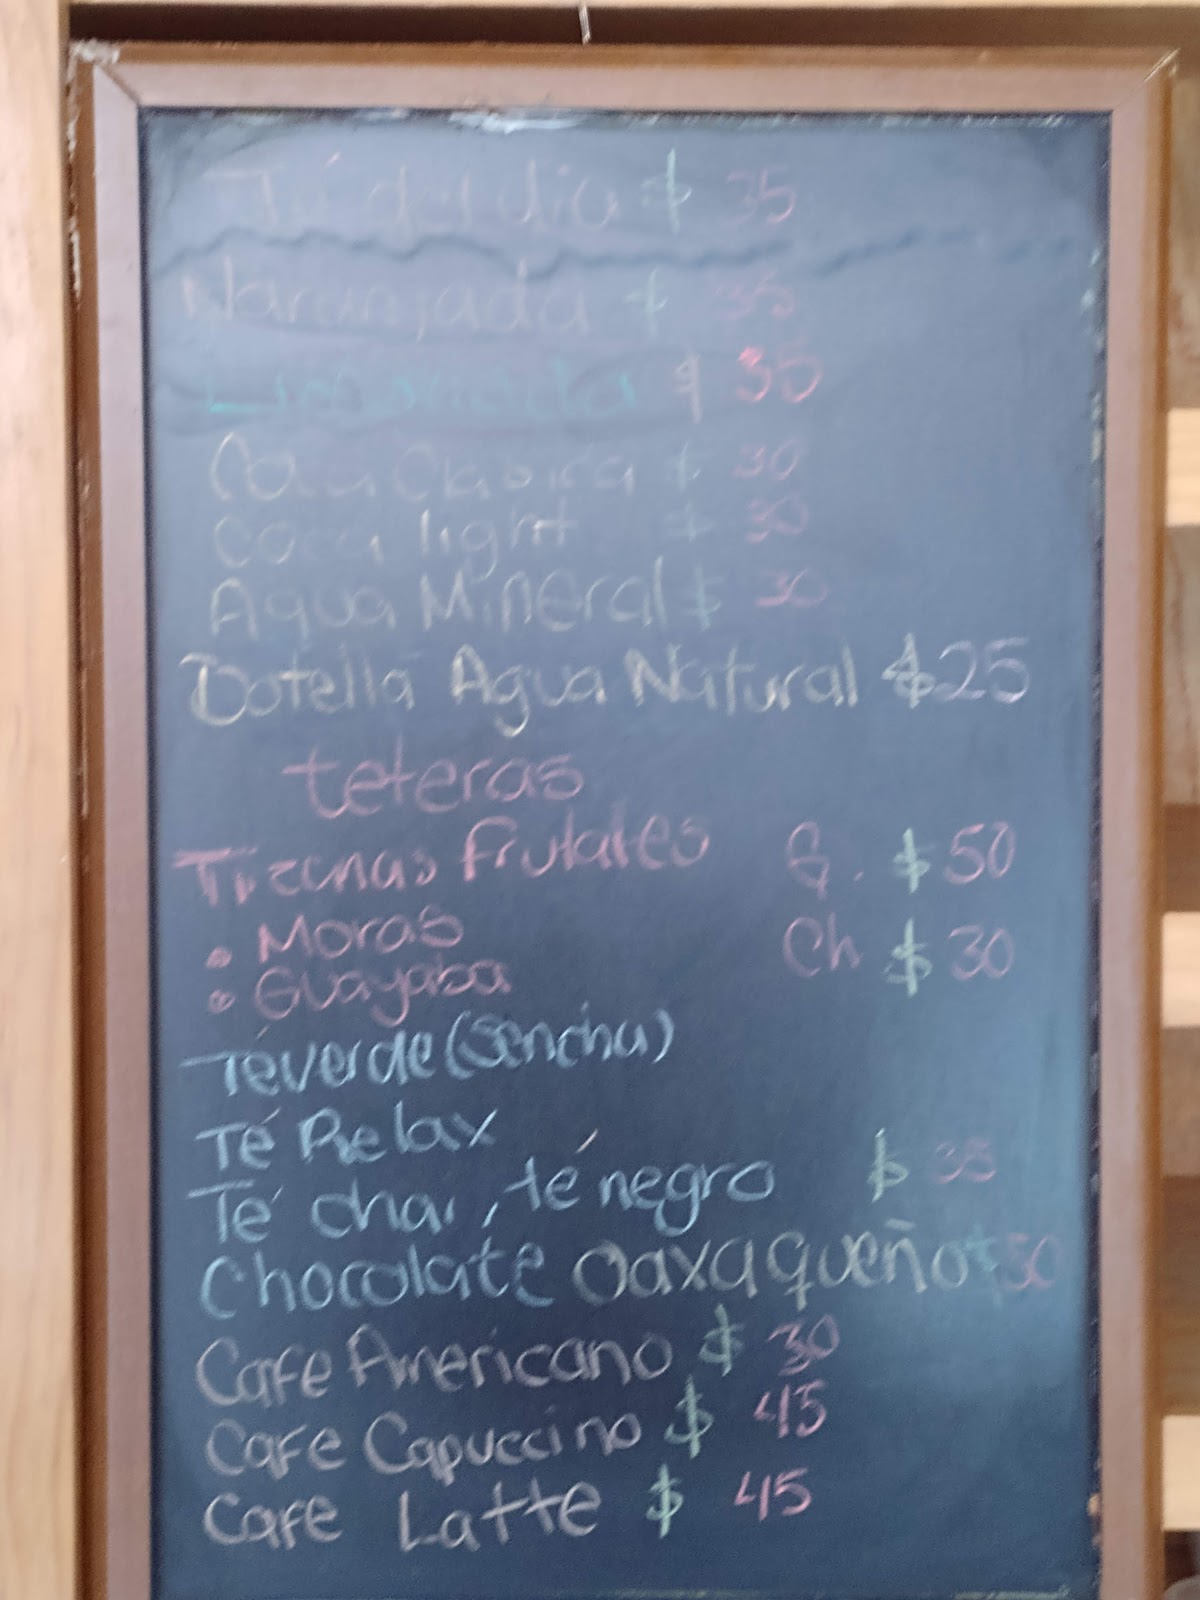 Té del dia $ 35
Naranjada $ 35
Limonada $ 35
Coca Clasica $ 30
Coca light $ 30
Agua Mineral $ 30
Botella Agua Natural $25
teteras
Tizanas Frutales G. $50
• Moras Ch $30
• Guayaba
Té verde (Sencha)
Té Relax
Té chai, té negro $ 35
Chocolate Oaxaqueño $50
Cafe Americano $ 30
Cafe Capuccino $ 45
Cafe Latte $ 45